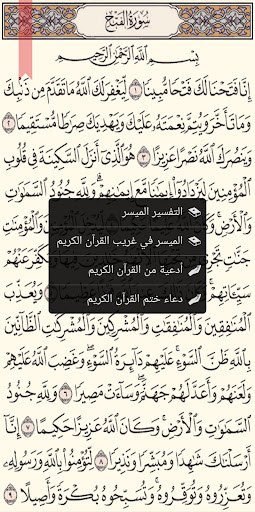 سُورَةُ الفَتۡحِ
بِسۡمِ ٱللَّهِ ٱلرَّحۡمَٰنِ ٱلرَّحِيمِ
إِنَّا فَتَحۡنَا لَكَ فَتۡحٗا مُّبِينٗا ١ لِّيَغۡفِرَ لَكَ ٱللَّهُ مَا تَقَدَّمَ مِن ذَنۢبِكَ
وَمَا تَأَخَّرَ وَيُتِمَّ نِعۡمَتَهُۥ عَلَيۡكَ وَيَهۡدِيَكَ صِرَٰطٗا مُّسۡتَقِيمٗا ٢
وَيَنصُرَكَ ٱللَّهُ نَصۡرًا عَزِيزًا ٣ هُوَ ٱلَّذِيٓ أَنزَلَ ٱلسَّكِينَةَ فِي قُلُوبِ
ٱلۡمُؤۡمِنِينَ لِيَزۡدَادُوٓاْ إِيمَٰنٗا مَّعَ إِيمَٰنِهِمۡۗ وَلِلَّهِ جُنُودُ ٱلسَّمَٰوَٰتِ
وَٱلۡأَرۡضِۚ وَٱلۡمُؤۡمِنَٰتِ
التفسير الميسر
جَنَّٰتٖ
الميسر في غريب القرآن الكريم
أدعية من القرآن الكريم
سَيِّـَٔاتِهِمۡۚ وَيُعَذِّبَ
دعاء ختم القرآن الكريم
ٱلۡمُنَٰفِقِينَ وَٱلۡمُنَٰفِقَٰتِ وَٱلۡمُشۡرِكِينَ وَٱلۡمُشۡرِكَٰتِ ٱلظَّآنِّينَ
بِٱللَّهِ ظَنَّ ٱلسَّوۡءِۚ عَلَيۡهِمۡ دَآئِرَةُ ٱلسَّوۡءِۖ وَغَضِبَ ٱللَّهُ عَلَيۡهِمۡ
وَلَعَنَهُمۡ وَأَعَدَّ لَهُمۡ جَهَنَّمَۖ وَسَآءَتۡ مَصِيرٗا ٦ وَلِلَّهِ جُنُودُ
ٱلسَّمَٰوَٰتِ وَٱلۡأَرۡضِۚ وَكَانَ ٱللَّهُ عَزِيزًا حَكِيمًا ٧ إِنَّآ
أَرۡسَلۡنَٰكَ شَٰهِدٗا وَمُبَشِّرٗا وَنَذِيرٗا ٨ لِّتُؤۡمِنُواْ بِٱللَّهِ وَرَسُولِهِۦ
وَتُعَزِّرُوهُ وَتُوَقِّرُوهُۚ وَتُسَبِّحُوهُ بُكۡرَةٗ وَأَصِيلًا ٩